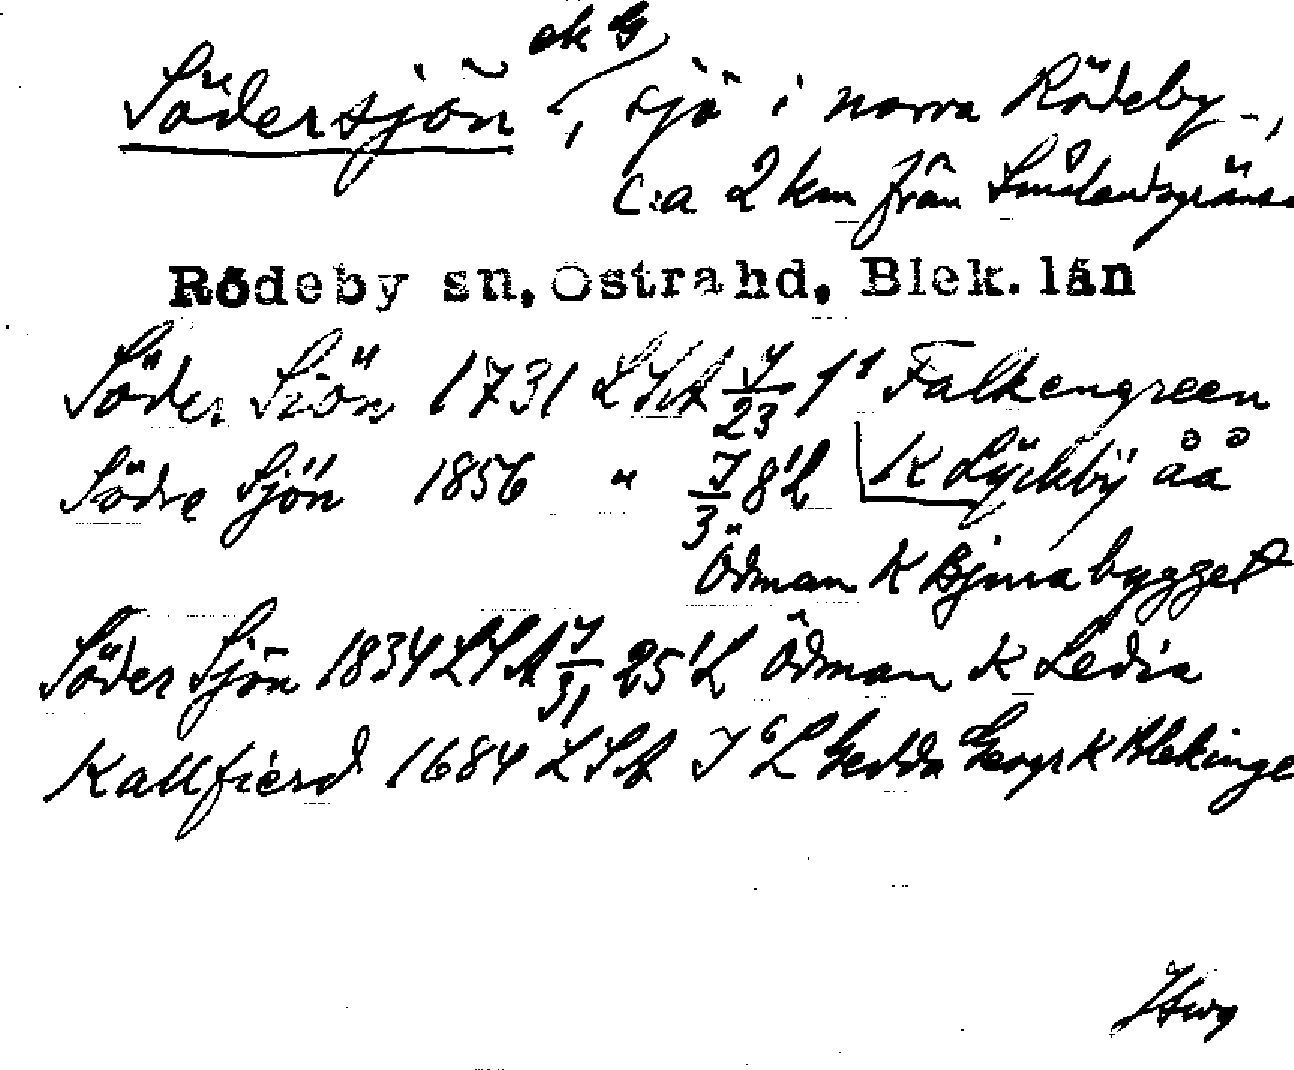 ek G
Södersjön, sjö i norra Rödeby -,
c:a 2 km från Smålandsgräns
Rödeby sn, Östra hd, Blek. län
Söder Siön 1731 LSA J/23 1¹ Falkengreen
Södre Sjön 1856 " J/3 8¹L K Lÿckbÿ åå
Ödman K Bjurabygget
Söder Sjön 1834 LSA J/31 25¹L Ödman K Ledia
Kallfierd 1684 LSA J⁶L Gedda Geogr K Blekinge